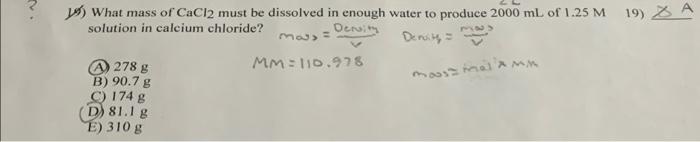 ?
2L
19) What mass of CaCl2 must be dissolved in enough water to produce 2000 mL of 1.25 M 19) A
solution in calcium chloride? mass = Density / V Density = mass / V
A) 278 g MM = 110.978
mass = mol * MM
B) 90.7 g
C) 174 g
D) 81.1 g
E) 310 g